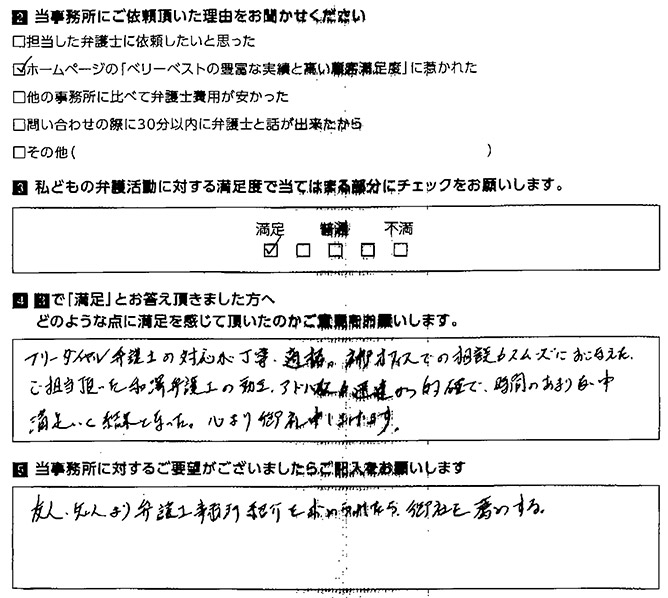 2 当事務所にご依頼頂いた理由をお聞かせください
□担当した弁護士に依頼したいと思った
☑ホームページの「ベリーベストの豊富な実績と高い顧客満足度」に惹かれた
□他の事務所に比べて弁護士費用が安かった
□問い合わせの際に30分以内に弁護士と話が出来たから
□その他( )
3 私どもの弁護活動に対する満足度で当てはまる部分にチェックをお願いします。
満足 普通 不満
☑ □ □ □ □
4 3で「満足」とお答え頂きました方へ
どのような点に満足を感じて頂いたのかご意見をお願いします。
フリーダイヤル弁護士の対応が丁寧、適格。オフィスでの相談もスムーズにおこなえた。
ご担当頂いた弁護士の助言、アドバイスも迅速かつ的確で、時間のあまりない中
満足いく結果となった。心より御礼申し上げます。
5 当事務所に対するご要望がございましたらご記入をお願いします
友人、知人より弁護士事務所紹介を求められたなら、御社を薦めする。